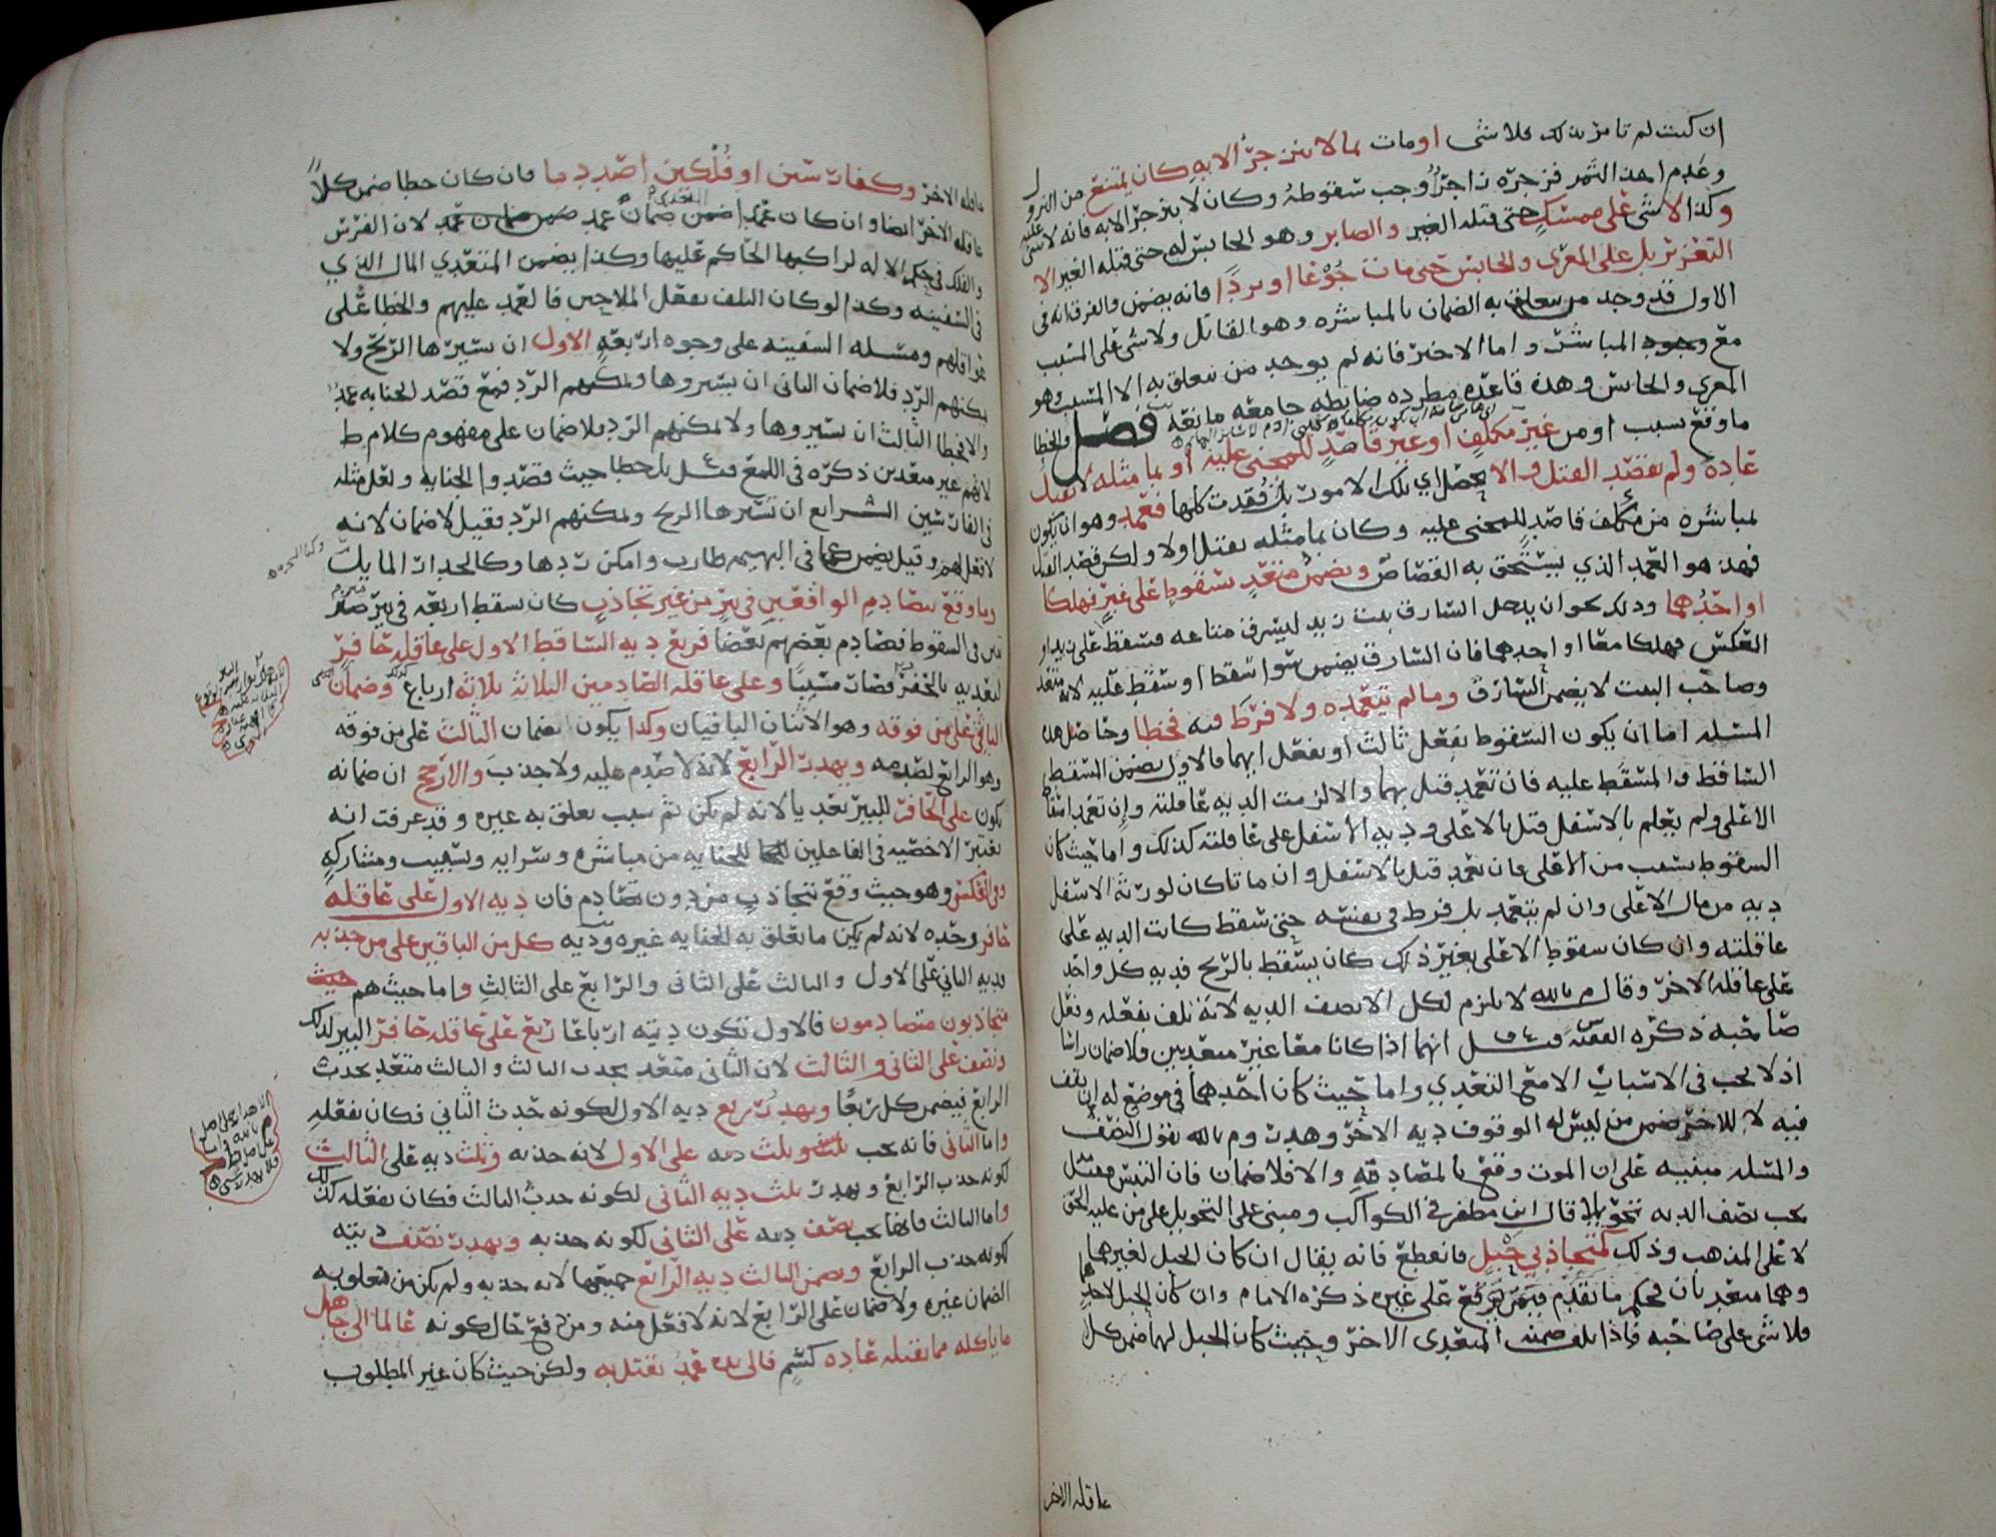 ان كنت لم تامر بذلك فلا شى او مات بما لا ينزجر الا به كان يمتنع من النزول
وعدم اخذ الثمر فزجره زاجر وجب سقوطه وكان لا ينزجر الا به فانه لا شى عليه
وكذا لا شى على ممسك حتى قتله الغير والصابر وهو الحابس له حتى قتله الغير الا
التعزير بل على المعرى والحابس حتى مات جوعا او بردا فانه يضمن والفرق انه فى
الاول قد وجد من يتعلق به الضمان بالمباشره وهو القاتل ولا شى على المسبب
مع وجود المباشر واما الاخير فانه لم يوجد من يتعلق به الا المسبب وهو
المعرى والحابس وهذه قاعده مطرده ضابطه جامعه مانعه فصل والخطا
ما وقع بسبب او من غير مكلف او غير قاصد للمجنى عليه او بما مثله لا يقتل
عاده ولم يقصد القتل والا يحصل اي تلك الامور بل فقدت كلها فعمد وهو ان يكون
مباشره من مكلف قاصد للمجنى عليه وكان بما مثله يقتل او لا ولكن قصد القتل
فهذا هو العمد الذي يستحق به القصاص ويضمن متعد سقوط على غير فهلكا
او احدهما وذلك نحو ان يدخل السارق بيت زيد ليسرق متاعه فسقط على زيد او
العكس فهلكا معا او احدهما فان السارق يضمن سوا سقط او سقط عليه لانه متعد
وصاحب البيت لا يضمن السارق وما لم يتعمده ولا فرط فيه فخطا وحاصل هذه
المسله اما ان يكون السقوط بفعل ثالث او بفعل ايهما فالاول يضمن المسقط
الساقط والمسقط عليه فان تعمد قتل بهما والا لزمت الديه عاقلته وان تعمد اسقاط
الاعلى ولم يعلم بالاسفل قتل بالاعلى وديه الاسفل على عاقلته كذلك واما حيث كان
السقوط بسبب من الاعلى فان تعمد قتل بالاسفل وان ماتا كان لورثة الاسفل
ديه من مال الاعلى وان لم يتعمد بل فرط فى نفسه حتى سقط كانت الديه على
عاقلته وان كان سقوط الاعلى بغير ذلك كان يسقط بالريح فديه كل واحد
على عاقلة الاخر وقال م بالله لا يلزم لكل الا نصف الديه لانه تلف بفعله وفعل
صاحبه ذكره الفقيه س وقيل انهما اذا كانا معا غير متعديين فلا ضمان راسا
اذ لا يجب فى الاسباب الا مع التعدي واما حيث كان احدهما فى موضع له ان يقف
فيه لا للاخر ضمن من ليس له الوقوف ديه الاخر وهدر وم بالله يقول النصف
والمسله مبنيه على ان الموت وقع بالمصادمه والا فلا ضمان فان التبس
يجب نصف الديه تحويلا قال ابن مظفر فى الكواكب ومبنى على التحويل على من عليه الحق
لا على المذهب وذلك كمتجاذبي حبل فانقطع فانه يقال ان كان الحبل لغيرهما
وهما متعديان فحكم ما تقدم فيمن وقع على غيره ذكره الامام وان كان الحبل لاحدهما
فلا شى على صاحبه واذا تلف ضمنه المتعدى الاخر وحيث كان الحبل لهما ضمن كل
عاقلة الاخر
عاقلة الاخر وكفارسين او فلكين اصدما فان كان خطا ضمن كلا
عاقلة الاخر ايضا وان كان عمدا ضمن ضمان عمد لان الفرس
والفلك فى حكم الاله لراكبها الحاكم عليها وكذا يضمن المتعدي المال الذي
فى السفينه وكذا لو كان التلف بفعل الملاحين فالعمد عليهم والخطا على
عواقلهم ومسله السفينه على وجوه اربعة الاول ان تسيرها الريح ولا
يمكنهم الرد فلا ضمان الثانى ان يسيروها ويمكنهم الرد فمع قصد الجنايه عمد
والا فخطا الثالث ان يسيروها ولا يمكنهم الرد فلا ضمان على مفهوم كلام ط
لانهم غير متعدين ذكره فى اللمع وقيل بل خطا حيث قصدوا الجنايه ولعل مثله
فى الفارسين الرابع ان تسيرها الريح ويمكنهم الرد فقيل لا ضمان لانه
لا فعل لهم وقيل يضمن كما فى البهيمه طارت وامكن ردها وكالجدار المايل
وما وقع بتصادم الواقعين فى بئر من غير تجاذب كان سقط اربعه فى بير
فى السقوط فصادم بعضهم بعضا فربع ديه الساقط الاول على عاقلة حافر
لتعديه بالحفر فصار مسببا وعلى عاقلة الصادمين الثلاثة ثلاثة ارباع وضمان
الثانى على من فوقه وهو الاثنان الباقيان وكذا يكون ضمان الثالث على من فوقه
وهو الرابع لصدمه ويهدر الرابع لانه لا صدم عليه ولا جذب والارجح ان ضمانه
يكون على الحافر للبير تعديا لانه لم يكن ثم سبب يعلق به غيره وقد عرفت انه
يعتبر الاخصيه فى الفاعلين للجنايه من مباشره وسرايه وتسبيب ومشاركه
وفى العكس وهو حيث وقع بتجاذب من دون تصادم فان ديه الاول على عاقلة
حافر وحده لانه لم يكن ما يعلق به الجنايه غيره وديه كل من الباقين على من جذبه
فديه الثاني على الاول والثالث على الثانى والرابع على الثالث واما حيث هم
متجاذبون متصادمون فالاول تكون ديته ارباعا ربع على عاقلة حافر البير لذلك
ونصف على الثانى والثالث لان الثانى متعد بجذب الثالث والثالث متعد بجذب
الرابع فيضمن كل ربعا ويهدر ربع ديه الاول لكونه جذب الثاني فكان بفعله
واما الثانى فانه يجب ثلث ديه على الاول لانه جذبه وثلث ديه على الثالث
لكونه جذب الرابع ويهدر ثلث ديه الثانى لكونه جذب الثالث فكان بفعله كذلك
واما الثالث فانما يجب نصف ديه على الثانى لكونه جذبه ويهدر نصف ديته
لكونه جذب الرابع ويضمن الثالث ديه الرابع جميعها لانه جذبه ولم يكن من يتعلق به
الضمان غيره ولا ضمان على الرابع لانه لا فعل منه ومن دفع حال كونه عالما الى جاهل
ما ياكله مما يقتله عاده كسم فالى يده عمد يقتل به ولكن حيث كان غير المطلوب